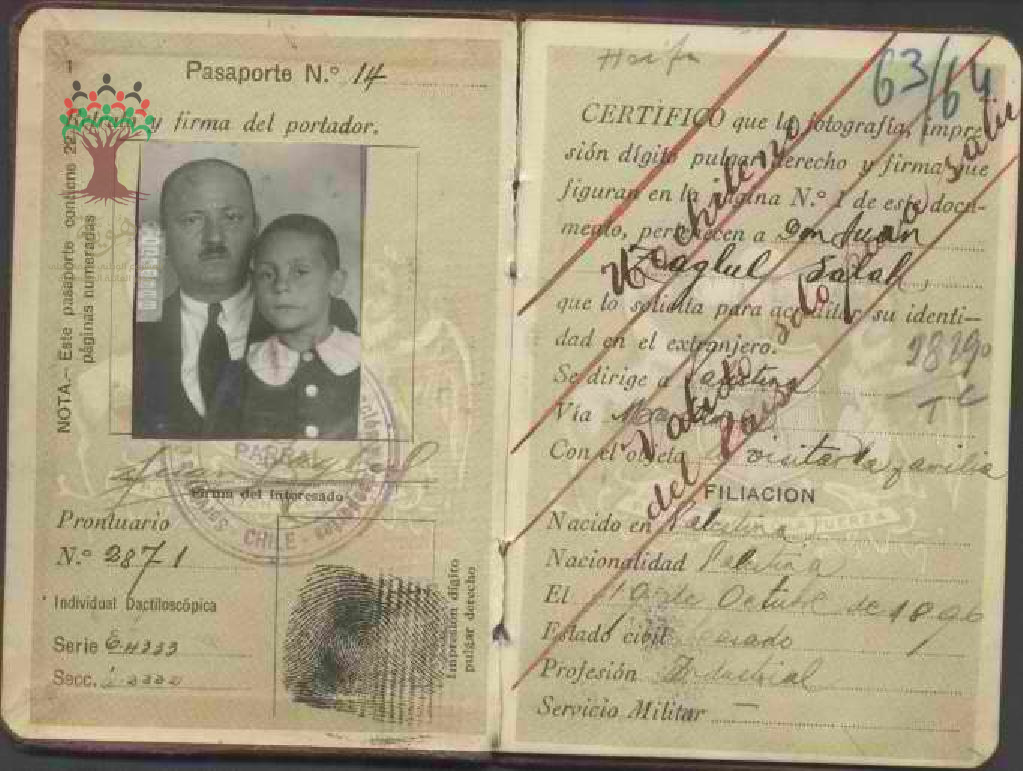 Pasaporte N.º 14
Retrato y firma del portador.
NOTA.— Este pasaporte contiene 22
páginas numeradas
PARRAL
CHILE
Firma del Interesado
Prontuario
N.º 2871
Individual Dactiloscópica
Serie E-4333
Secc. i-2222
Impresión dígito
pulgar derecho
Haifa
63/64
CERTIFICO que la fotografía, impre-
sión dígito pulgar derecho y firma que
figuran en la página N.º 1 de este docu-
mento, pertenecen a Don Juan
Zaglul Salah,
que lo solicita para acreditar su identi-
dad en el extranjero.
Se dirige a Palestina
Vía
Con el objeto visitar la familia
FILIACION
Nacido en Palestina
Nacionalidad Palestina
El 10 de Octubre de 1890
Estado civil Casado
Profesión Industrial
Servicio Militar —
No chileno
Valido solo para salir
del Pais